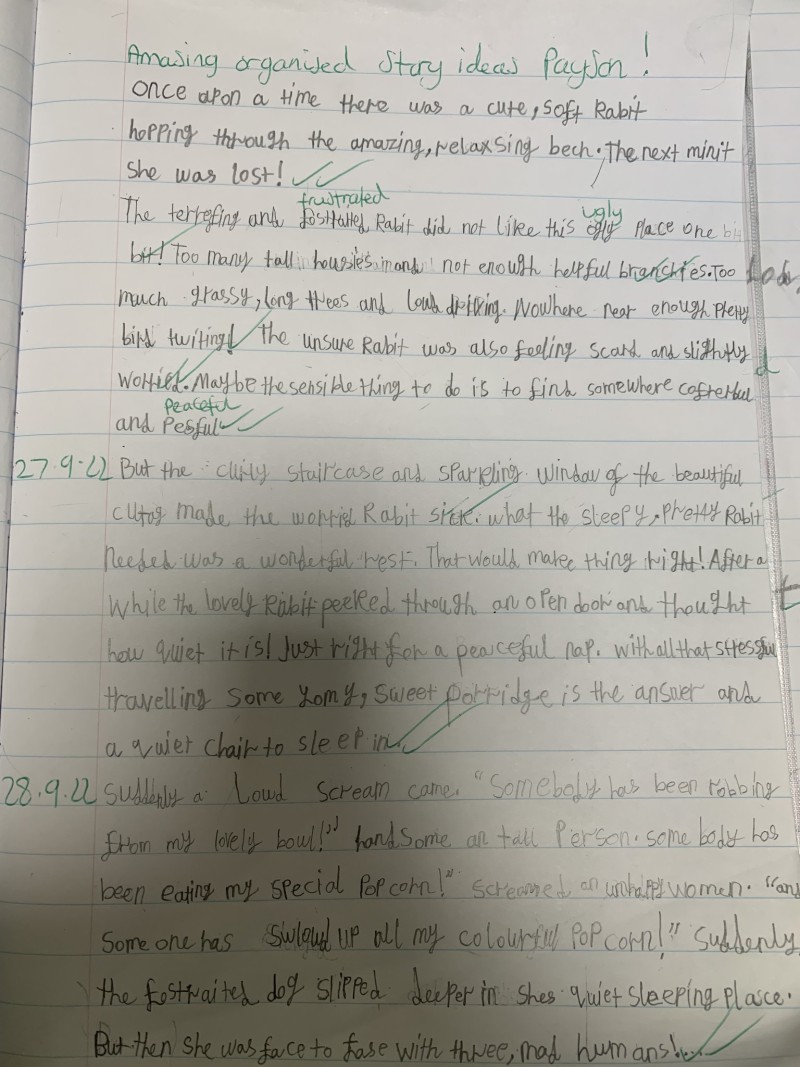 Amasing organised story ideas Payson!
Once upon a time there was a cute, soft Rabit
hopping through the amazing, relaxsing bech. The next minit
she was lost!
frustrated ugly
The terrefing and Rabit did not like this place one
bit! Too many tall and not enough helpful Too
much grassy, long trees and loud driving. Nowhere near enough pretty
bird twiting! the unsure Rabit was also feeling scard and slightly
worried. Maybe the sensible thing to do is to find somewhere
Peaceful
and Pesful
27.9.22 But the curly staircase and sparkling window of the beautiful
made the Rabit sick. what the sleepy, pretty Rabit
needed was a wonderful rest. That would make thing right! After a
while the lovely Rabit peeked through an open door and thought
how quiet it is! Just right for a peaceful nap. with all that stressful
travelling some yomy, sweet porridge is the answer and
a quiet chair to sleep in.
28.9.22 Suddenly a loud scream came. "Somebody has been robbing
from my lovely bowl!" handsome an tall Person. some body has
been eating my special Popcorn!" screamed an unhappy women. "and
Some one has up all my colourful Pop corn!" Suddenly
the dog slipped deeper in shes quiet sleeping
But then she was face to fase with three, mad humans!